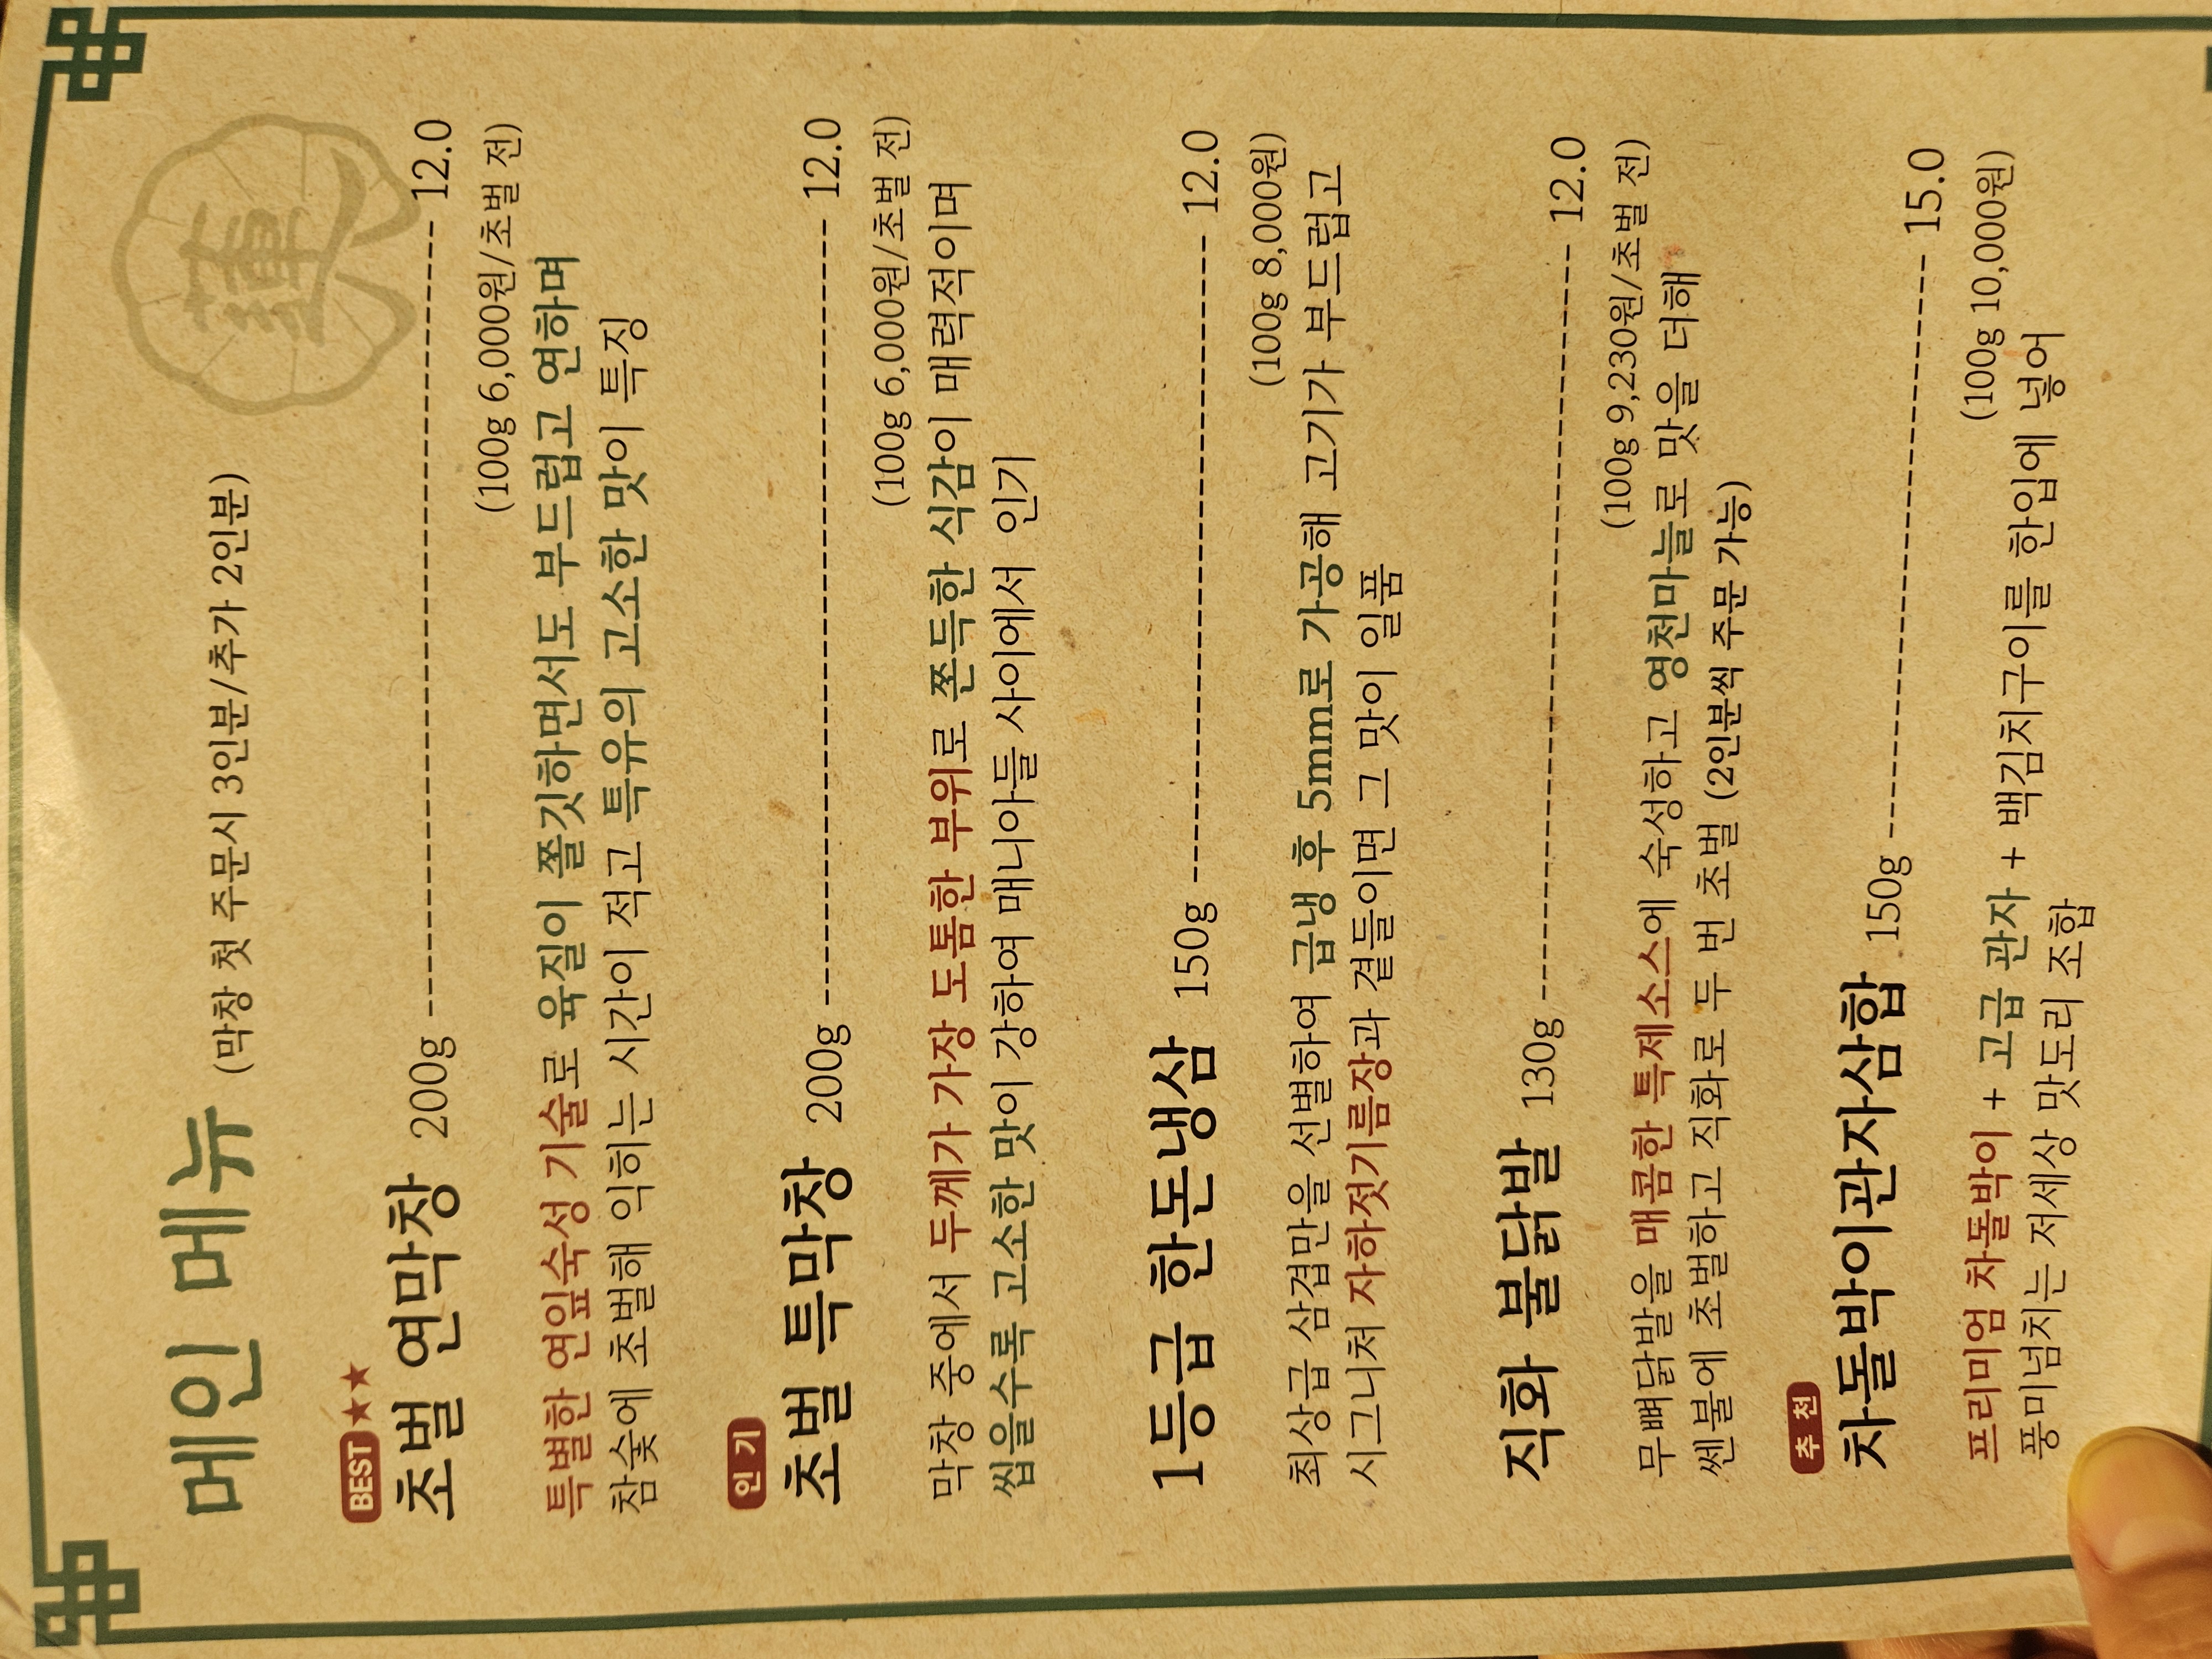 蓮
메인 메뉴 (막창 첫 주문시 3인분/추가 2인분)
BEST★★
초벌 연막창 200g ---- 12.0
(100g 6,000원/초벌 전)
특별한 연잎숙성 기술로 육질이 쫄깃하면서도 부드럽고 연하며
참숯에 초벌해 익히는 시간이 적고 특유의 고소한 맛이 특징
인기
초벌 특막창 200g ---- 12.0
(100g 6,000원/초벌 전)
막창 중에서 두께가 가장 도톰한 부위로 쫀득한 식감이 매력적이며
씹을수록 고소한 맛이 강하여 매니아들 사이에서 인기
1등급 한돈냉삼 150g ---- 12.0
(100g 8,000원)
최상급 삼겹만을 선별하여 급냉 후 5mm로 가공해 고기가 부드럽고
시그니처 자하젓기름장과 곁들이면 그 맛이 일품
직화 불닭발 130g ---- 12.0
(100g 9,230원/초벌 전)
무뼈닭발을 매콤한 특제소스에 숙성하고 영천마늘로 맛을 더해
쎈불에 초벌하고 직화로 두 번 초벌 (2인분씩 주문 가능)
추천
차돌박이관자삼합 150g ---- 15.0
(100g 10,000원)
프리미엄 차돌박이 + 고급 관자 + 백김치구이를 한입에 넣어
풍미넘치는 저세상 맛도리 조합